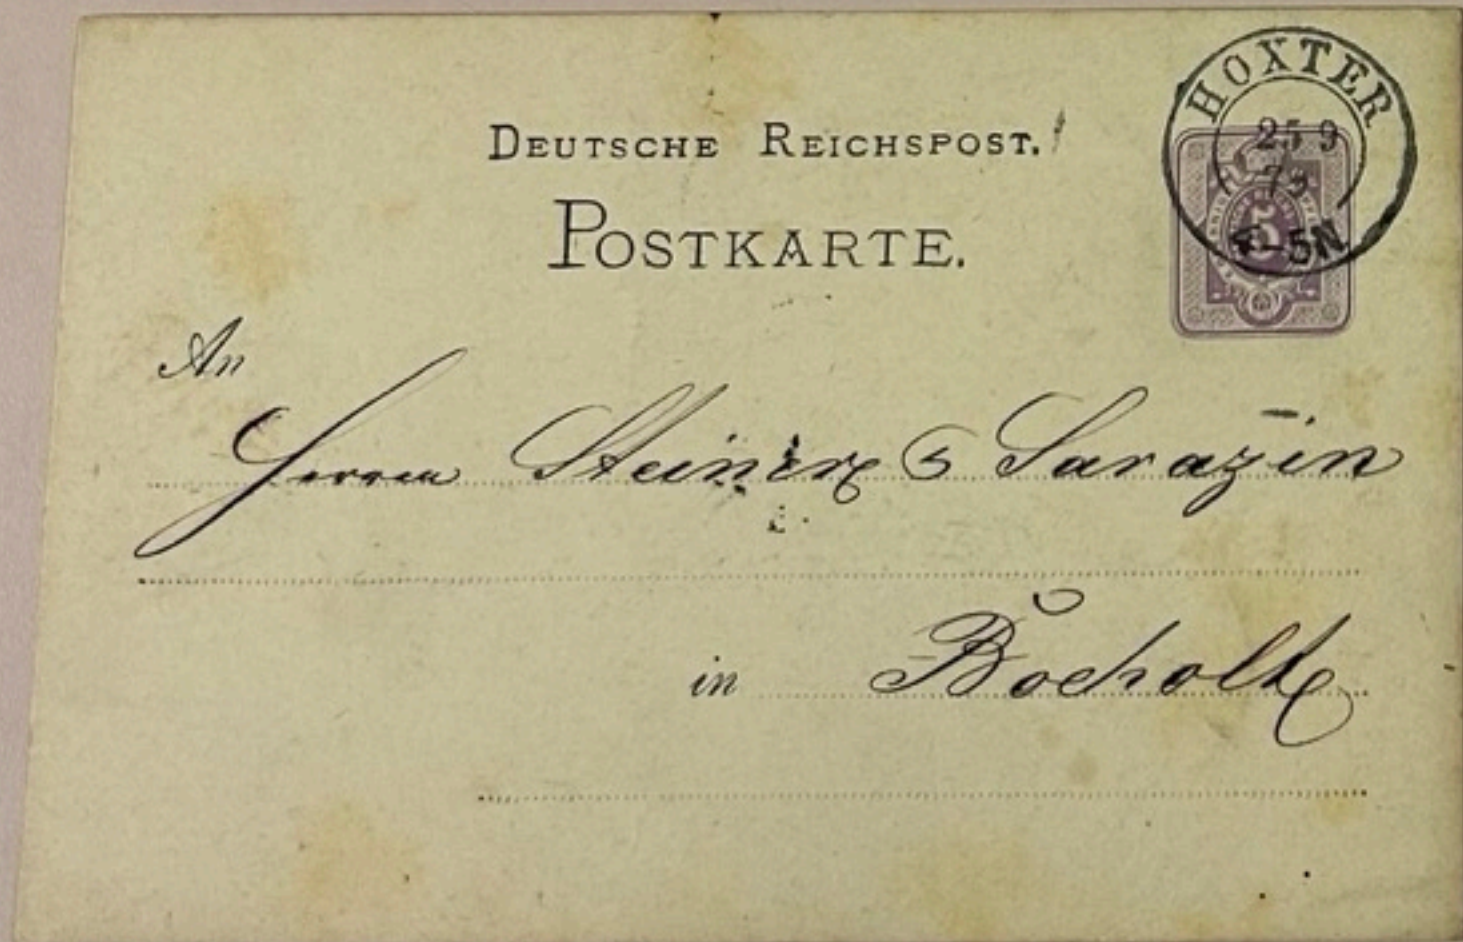 HOXTER
25 9
4-5N
5
DEUTSCHE REICHSPOST.
POSTKARTE.
An
Herren Steiner & Sarazin
in Bocholt